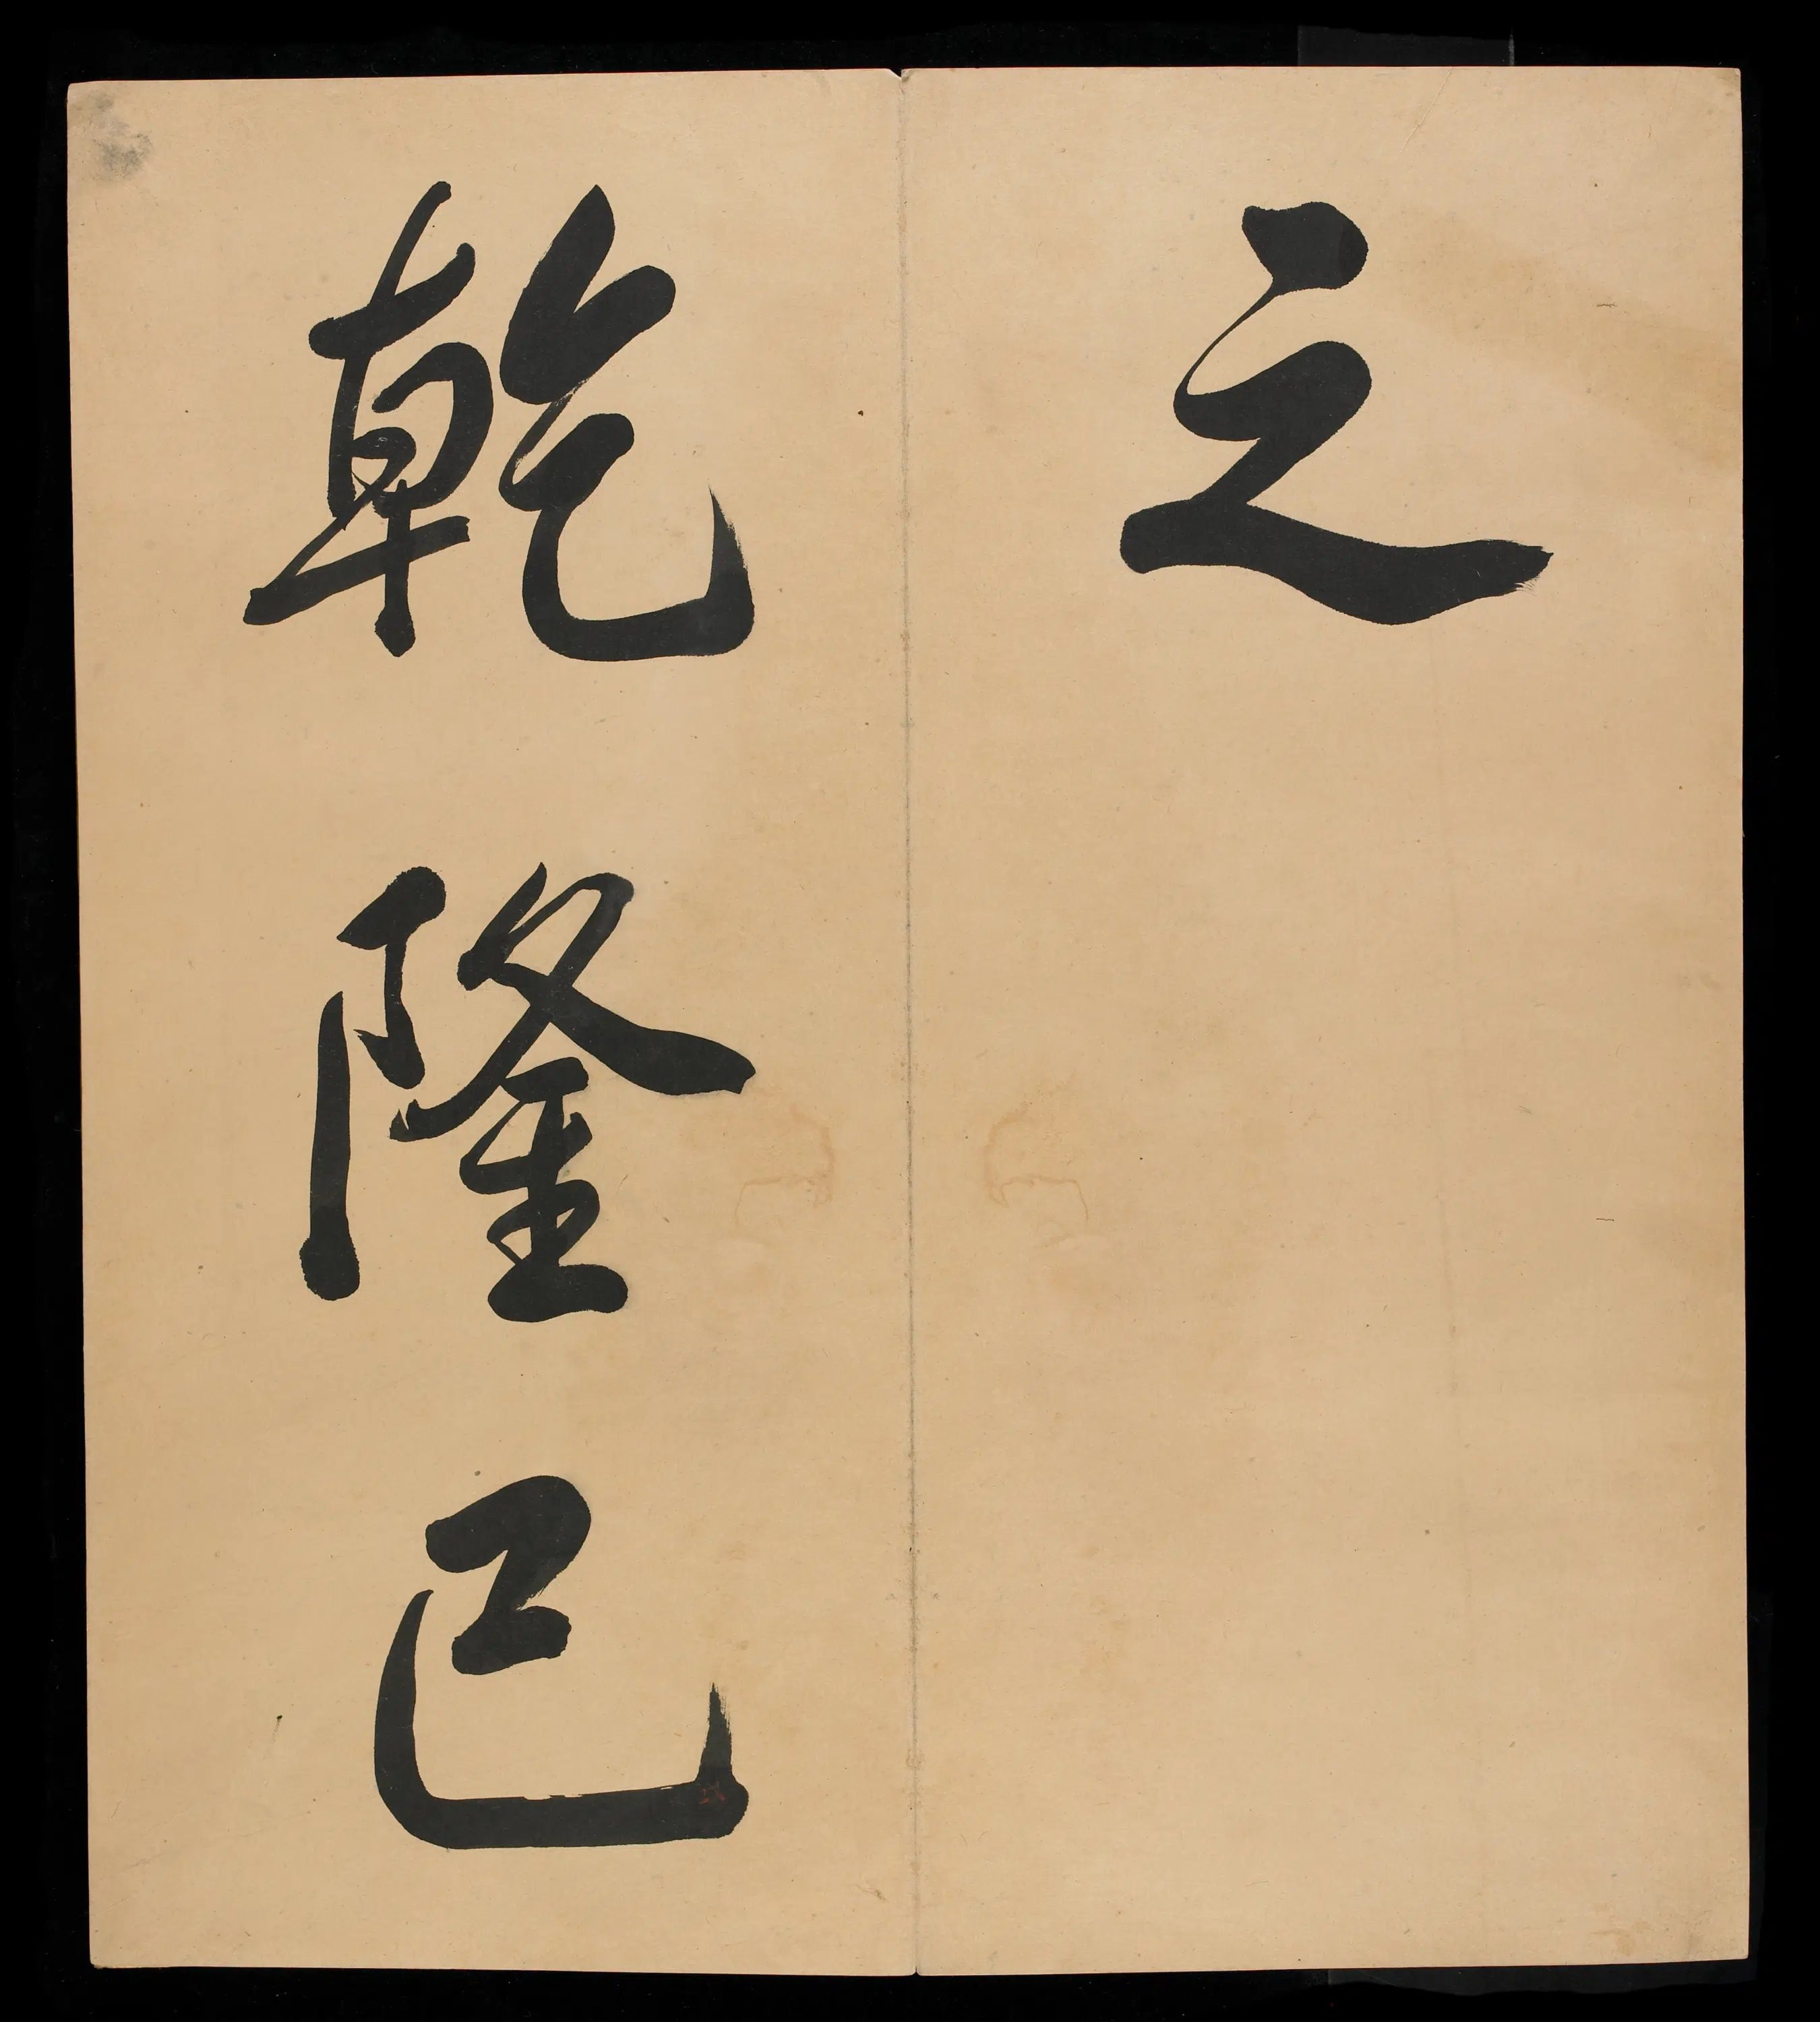 之
乾隆己